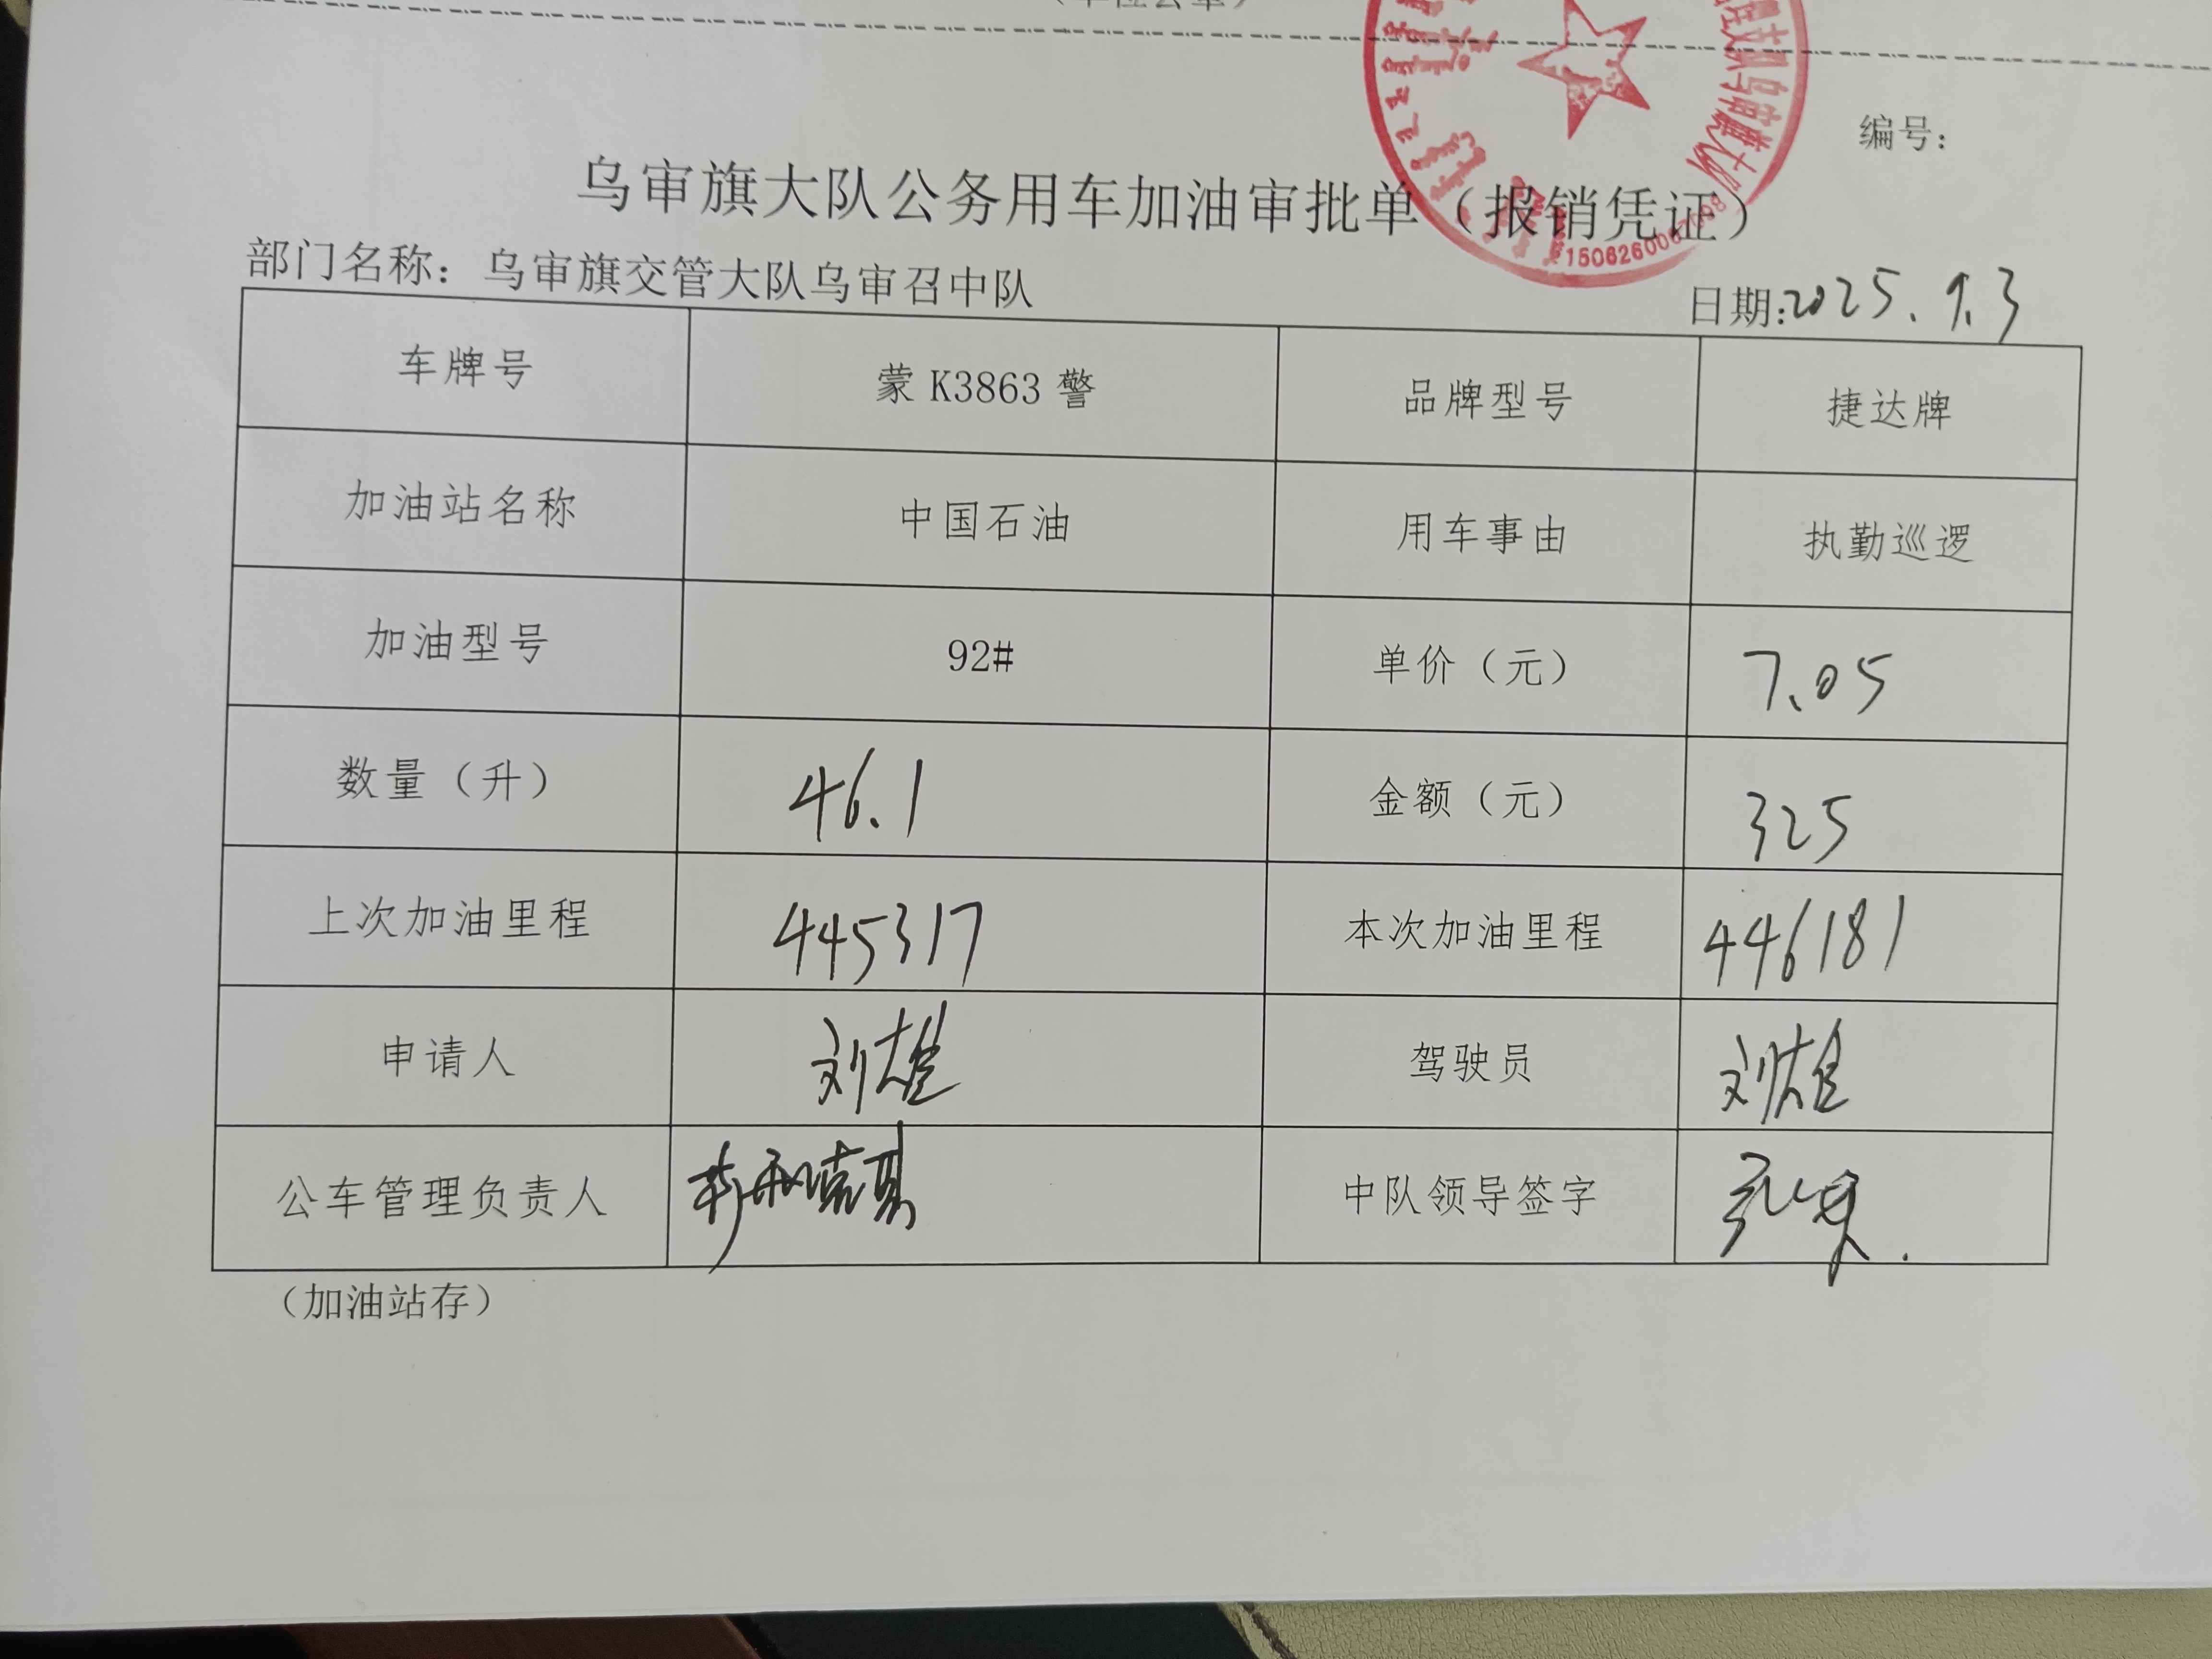 编号：
乌审旗大队公务用车加油审批单（报销凭证）
部门名称：乌审旗交管大队乌审召中队 日期：2025.9.3
车牌号 蒙K3863警 品牌型号 捷达牌
加油站名称 中国石油 用车事由 执勤巡逻
加油型号 92# 单价（元） 7.05
数量（升） 46.1 金额（元） 325
上次加油里程 445317 本次加油里程 446181
申请人 刘雄 驾驶员 刘雄
公车管理负责人 中队领导签字
（加油站存）